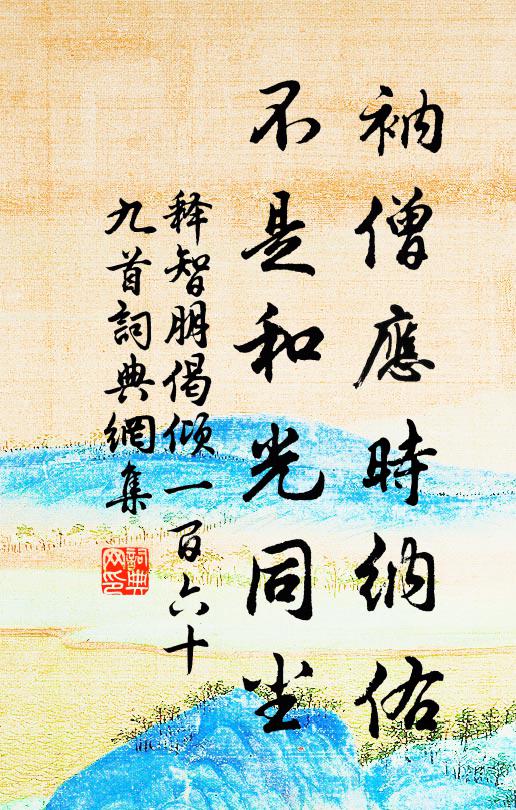 衲僧應時納佑
不是和光同尘
释智朋偈倾一百六十
九首詞典網集
詞典